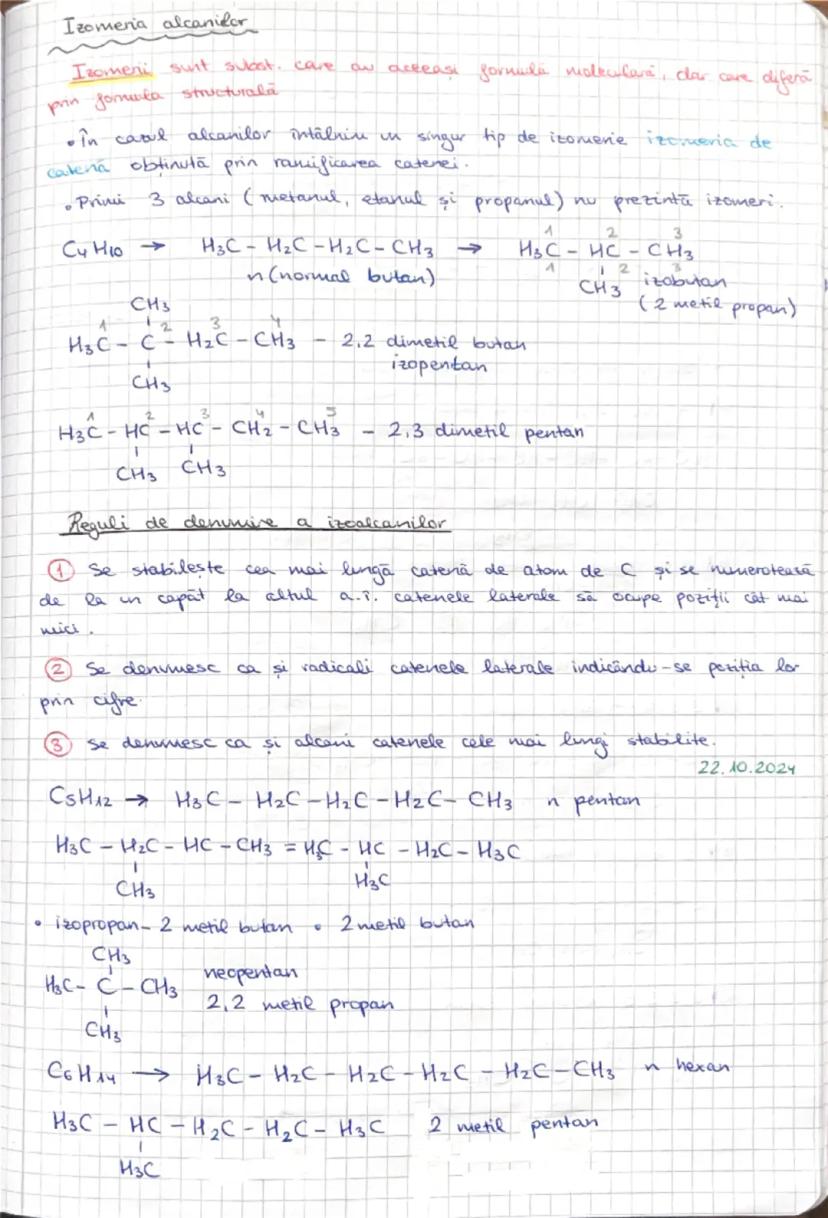 Izomeria alcanilor
Izomerii sunt subst. care au aceeași formulă moleculară, dar care diferă
prin formula structurală
• În cazul alcanilor întâlnim un singur tip de izomerie izomeria de
catenă obținută prin ramificarea catenei.
• Primii 3 alcani (metanul, etanul și propanul) nu prezintă izomeri.
1 2 3
C4H10 → H3C - H2C - H2C - CH3 → H3C - HC - CH3
1 2 3
n (normal butan) CH3 izobutan
(2 metil propan)
CH3
1 2 3 4
H3C - C - H2C - CH3 - 2,2 dimetil butan
izopentan
CH3
1 2 3 4 5
H3C - HC - HC - CH2 - CH3 - 2,3 dimetil pentan
CH3 CH3
Reguli de denumire a izoalcanilor
1 Se stabilește cea mai lungă catenă de atom de C și se numerotează
de la un capăt la altul a.î. catenele laterale să ocupe poziții cât mai
mici.
2 Se denumesc ca și radicali catenele laterale indicându-se poziția lor
prin cifre.
3 Se denumesc ca și alcani catenele cele mai lungi stabilite.
22.10.2024
C5H12 → H3C - H2C - H2C - H2C - CH3 n pentan
H3C - H2C - HC - CH3 = H3C - HC - H2C - H3C
CH3 H3C
• izopropan - 2 metil butan • 2 metil butan
CH3
H3C - C - CH3 neopentan
2,2 metil propan
CH3
C6H14 → H3C - H2C - H2C - H2C - H2C - CH3 n hexan
H3C - HC - H2C - H2C - H3C 2 metil pentan
H3C